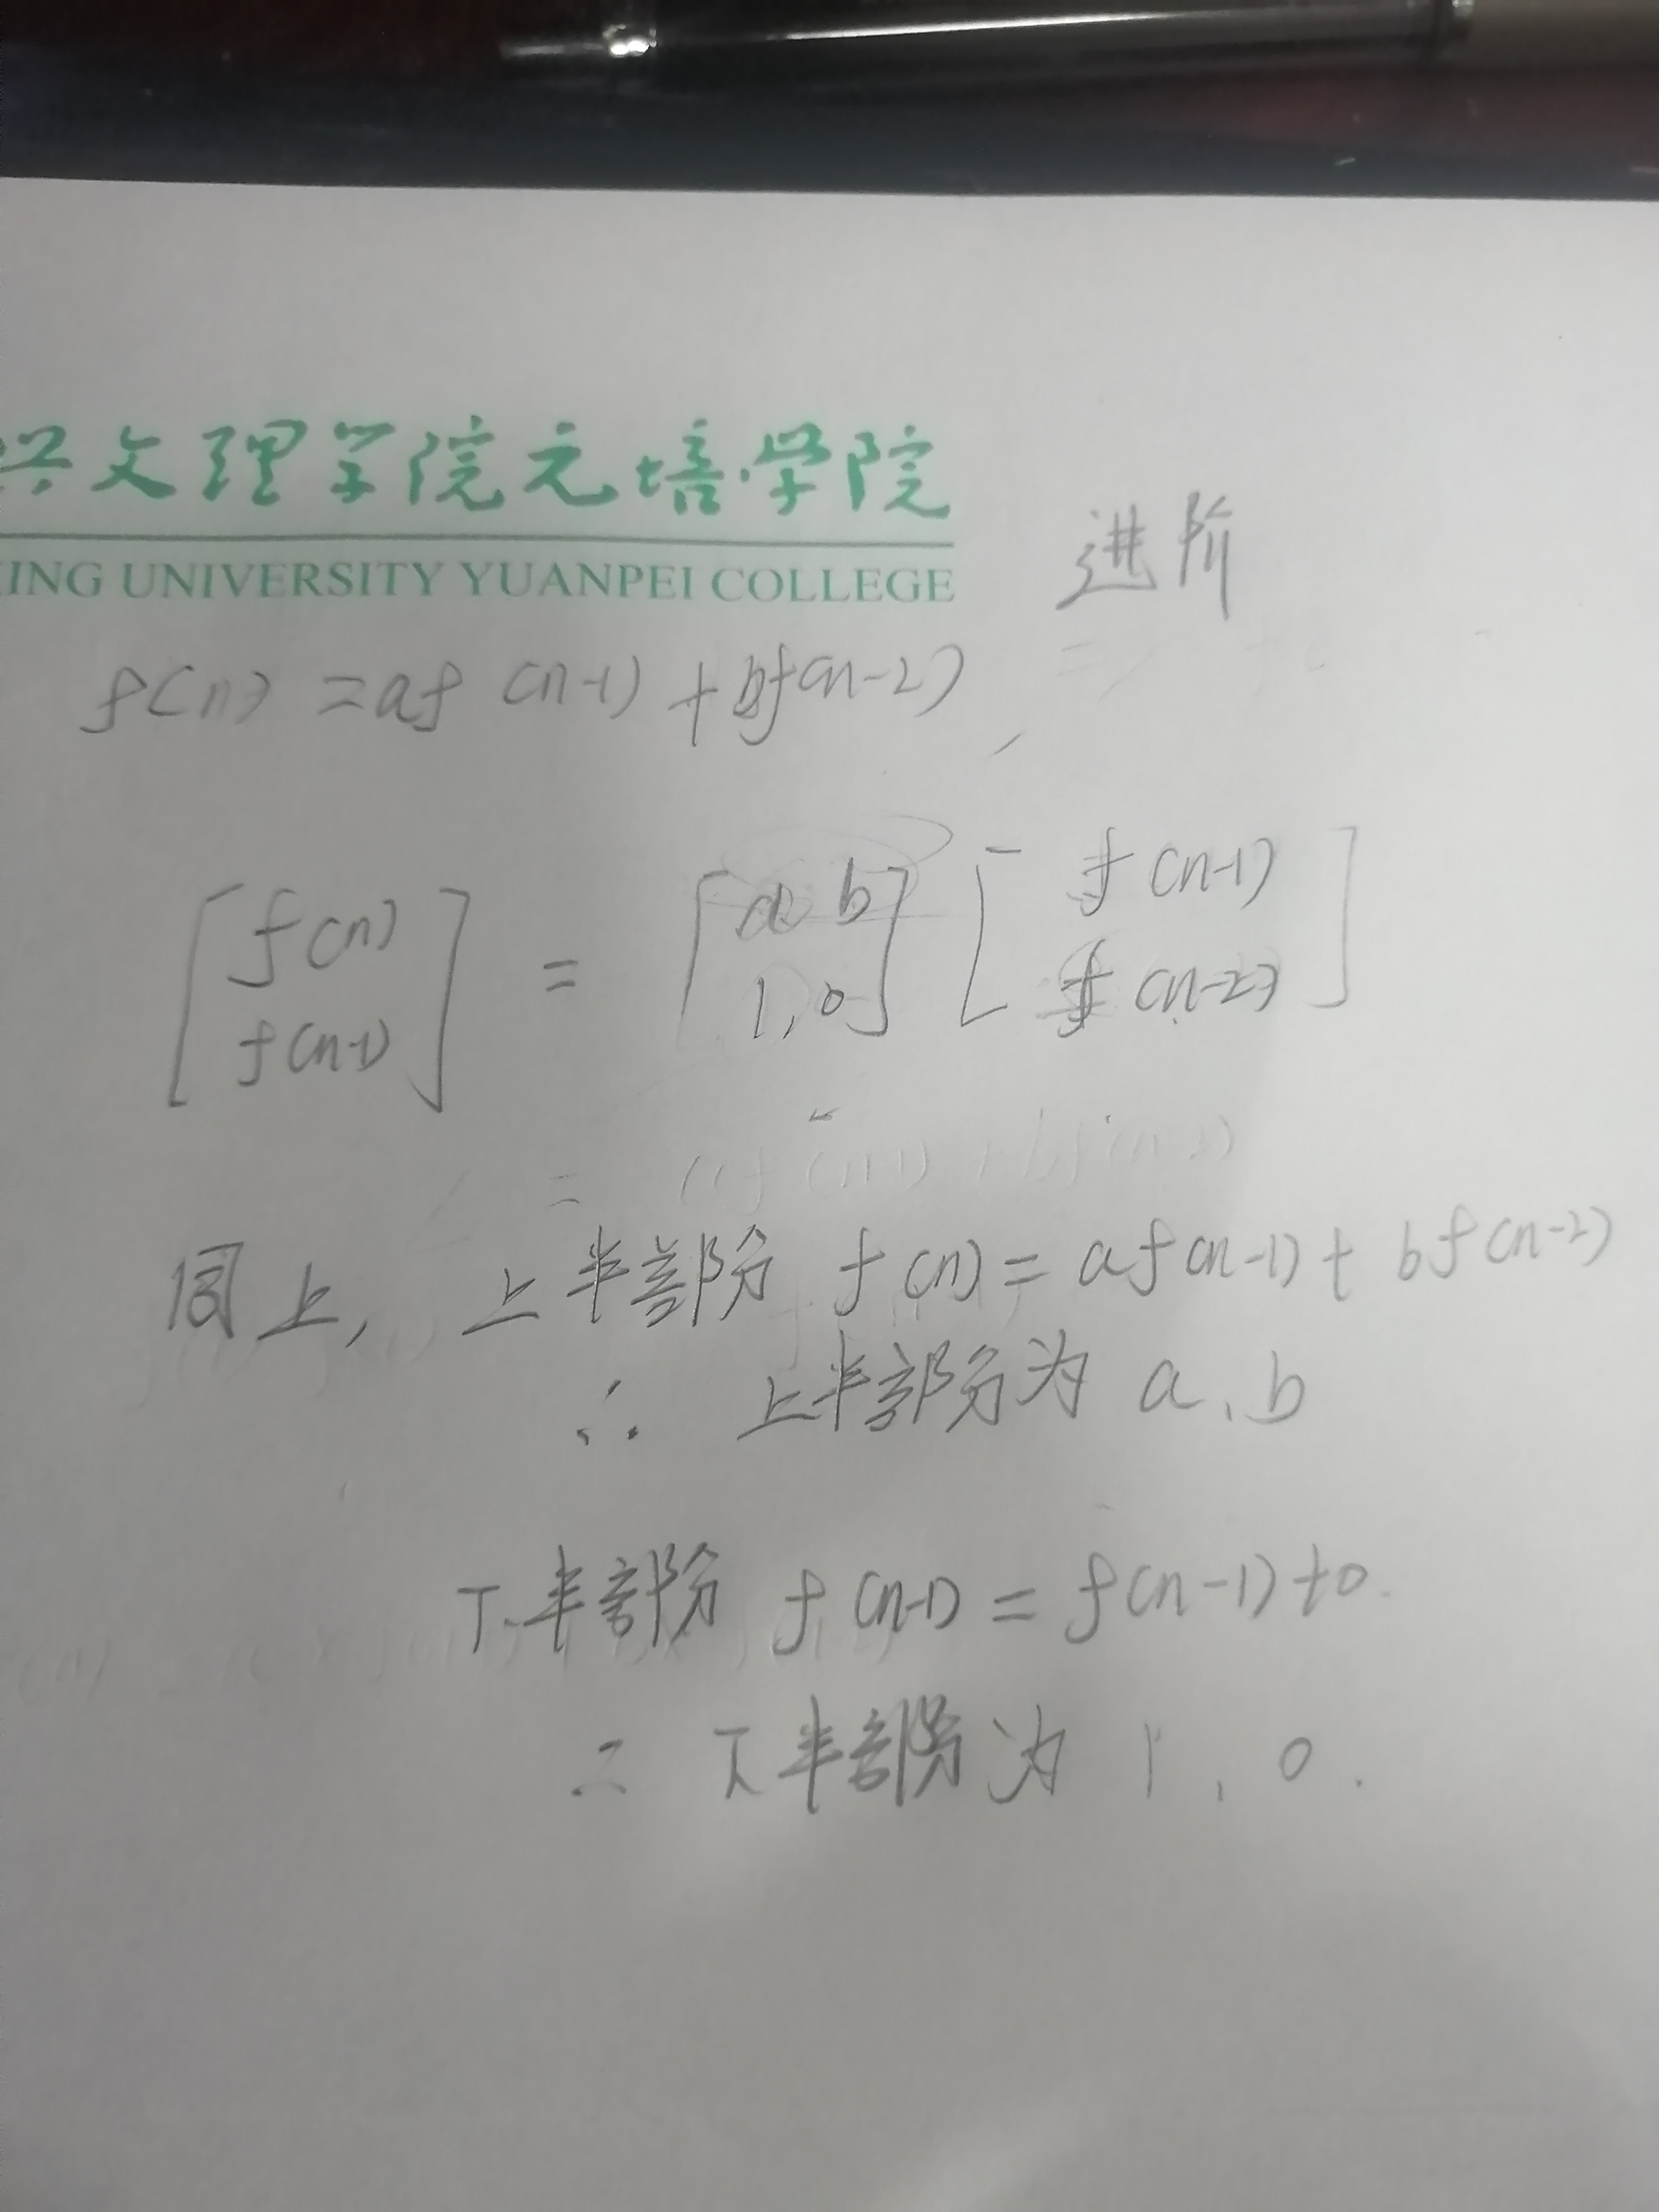 兴文理学院元培学院
ING UNIVERSITY YUANPEI COLLEGE
进阶
f(n) = af(n-1) + bf(n-2)
[f(n)] = [a b] [f(n-1)]
[f(n-1)] [1, 0] [f(n-2)]
同上, 上半部分 f(n) = af(n-1) + bf(n-2)
∴ 上半部分为 a、b
下半部分 f(n-1) = f(n-1)+0.
∴ 下半部分为 1, 0.